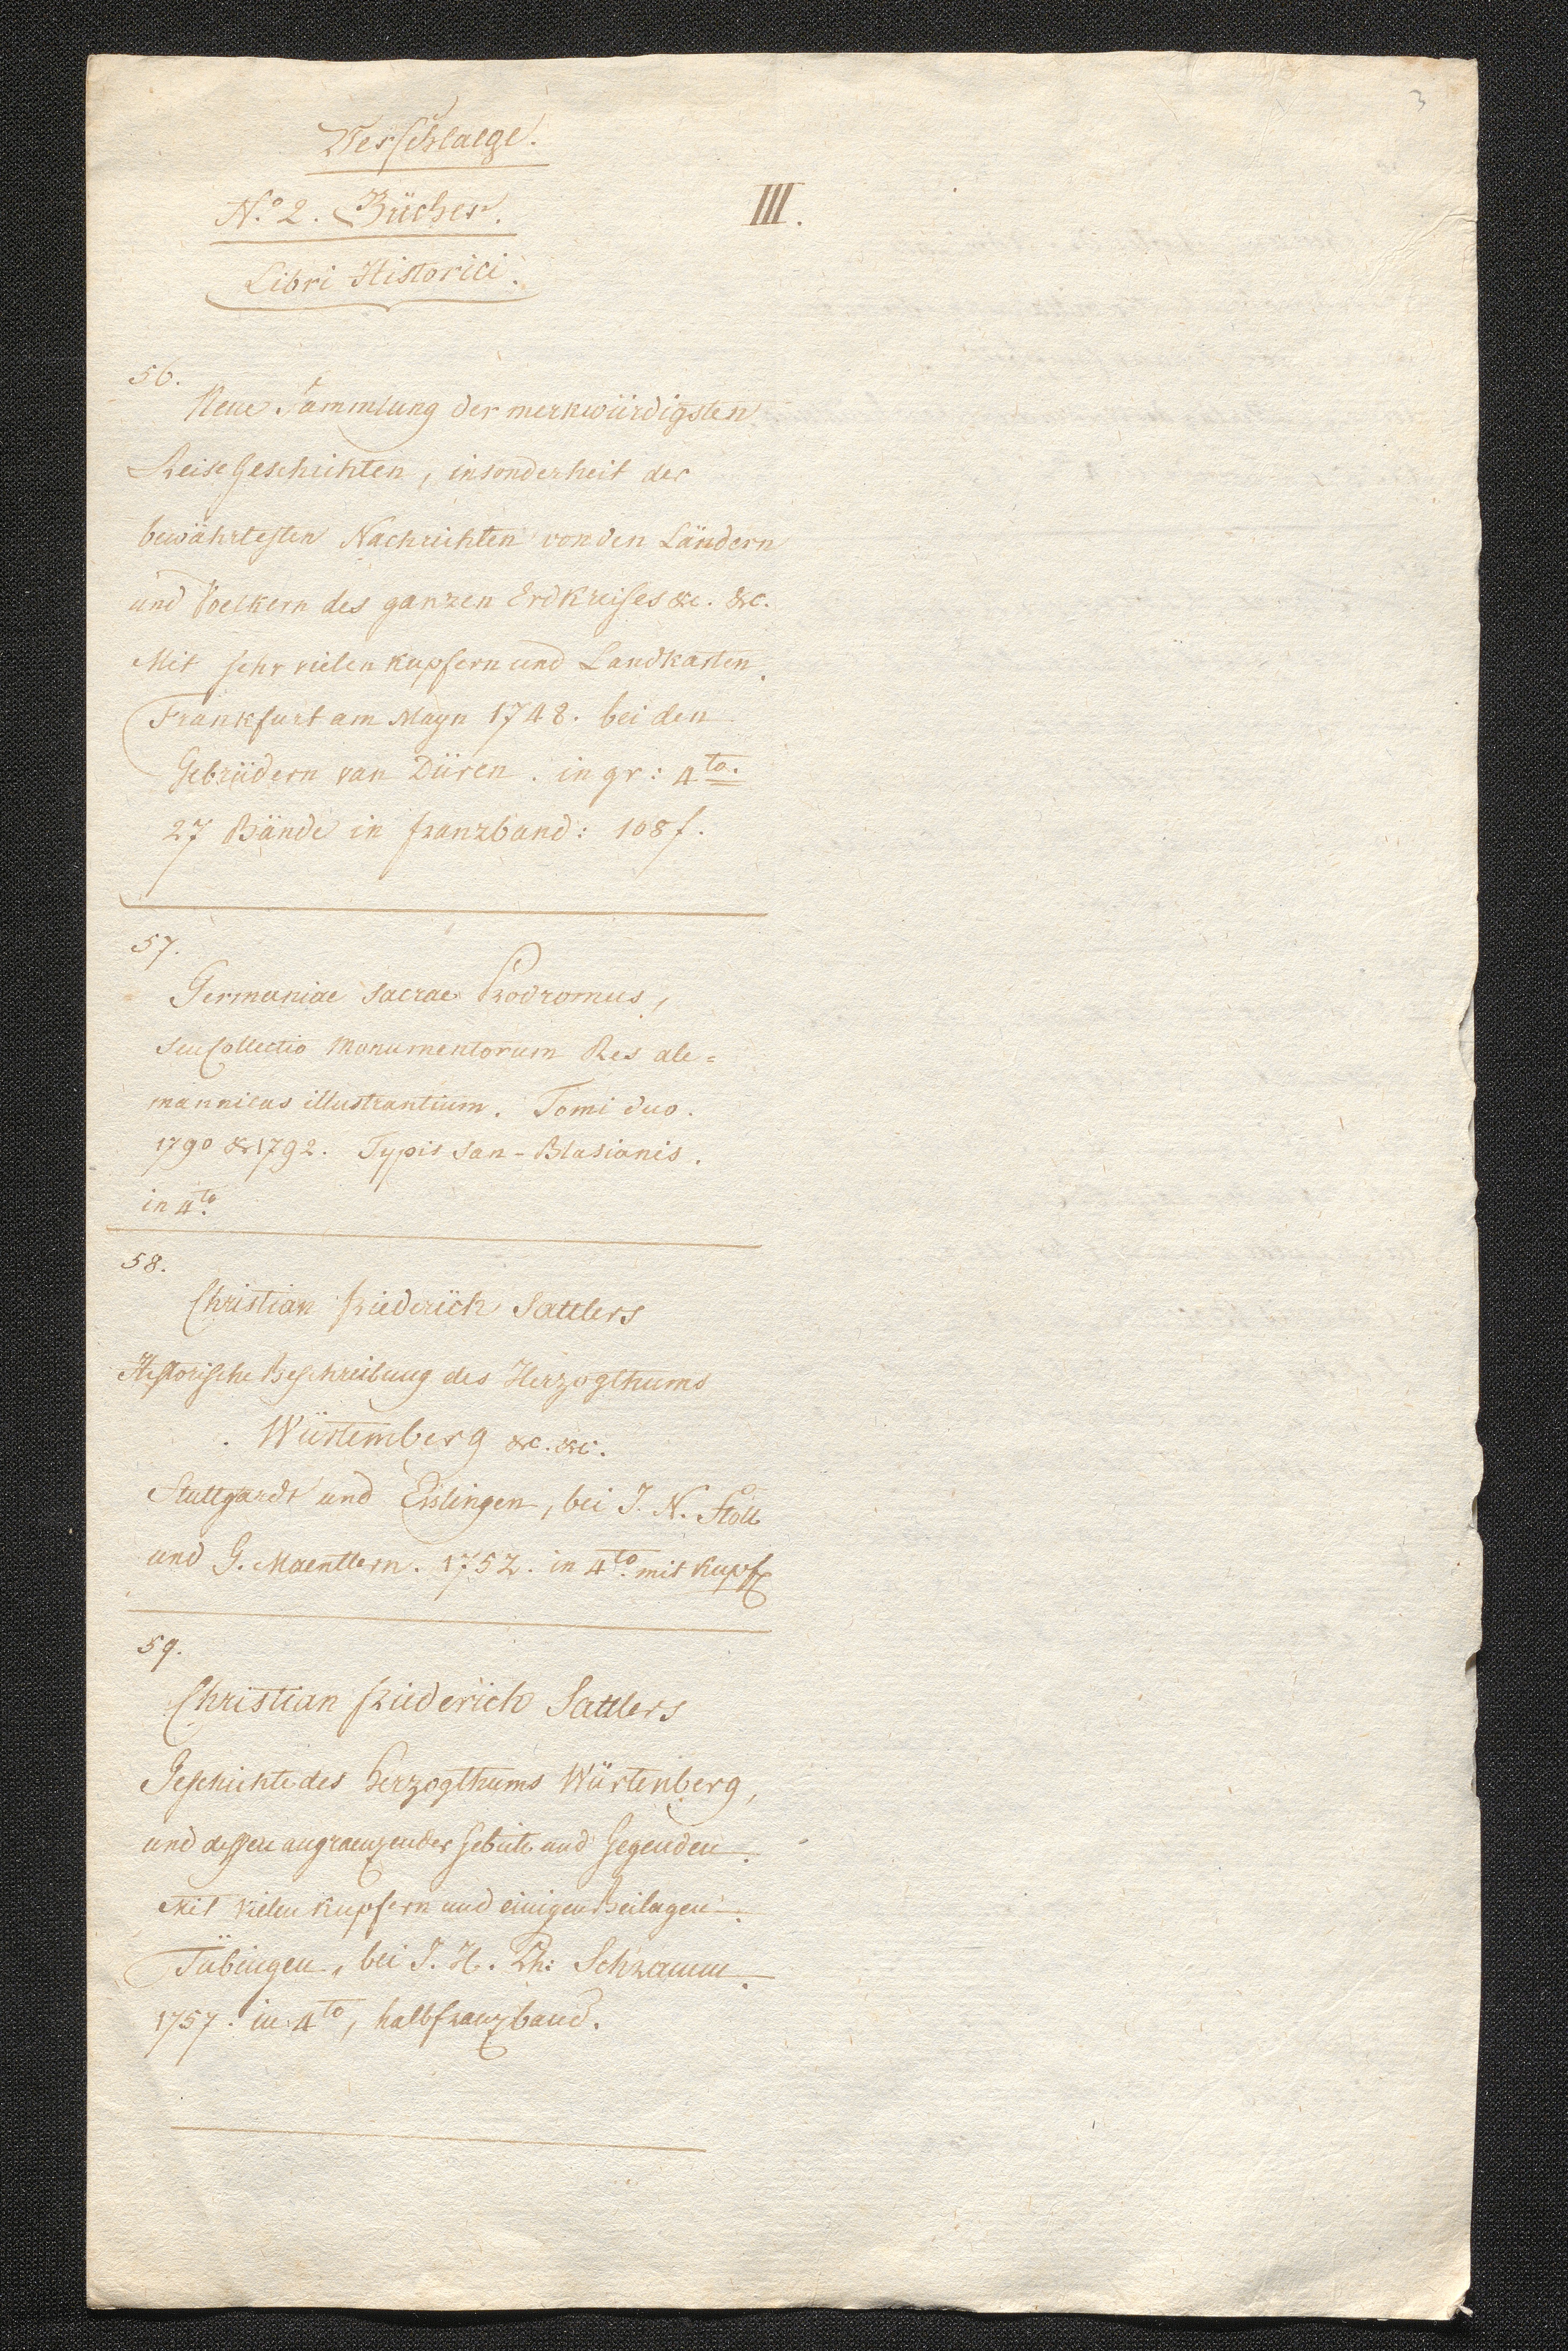 3
Verschlaege.
N.o 2. Bücher.
III.
Libri Historici.
56.
Neue Sammlung der merkwürdigsten
Reise Geschichten, insonderheit der
bewährtesten Nachrichten von den Ländern
und Voelkern des ganzen Erdkreises &c. &c.
Mit sehr vielen Kupfern und Landkarten.
Frankfurt am Mayn 1748. bei den
Gebrüdern van Düren. in gr: 4to.
27 Bände in franzband: 108 f.
57.
Germaniae sacrae Prodromus,
seu Collectio Monumentorum Res ale=
mannicas illustrantium. Tomi duo.
1790 & 1792. Typis San-Blasianis.
in 4to.
58.
Christian friederich Sattlers
Historische Beschreibung des Herzogthums
Würtemberg &c. &c.
Stuttgardt und Eslingen, bei J. N. Stoll
und G. Maenttern. 1752. in 4to. mit Kupf
59.
Christian friederich Sattlers
Geschichte des Herzogthums Würtenberg,
und dessen angraenzender Gebiete und Gegenden.
Mit vielen Kupfern und einigen Beilagen.
Tübingen, bei J. H. Ph: Schramm.
1757. in 4to, halbfranzband.